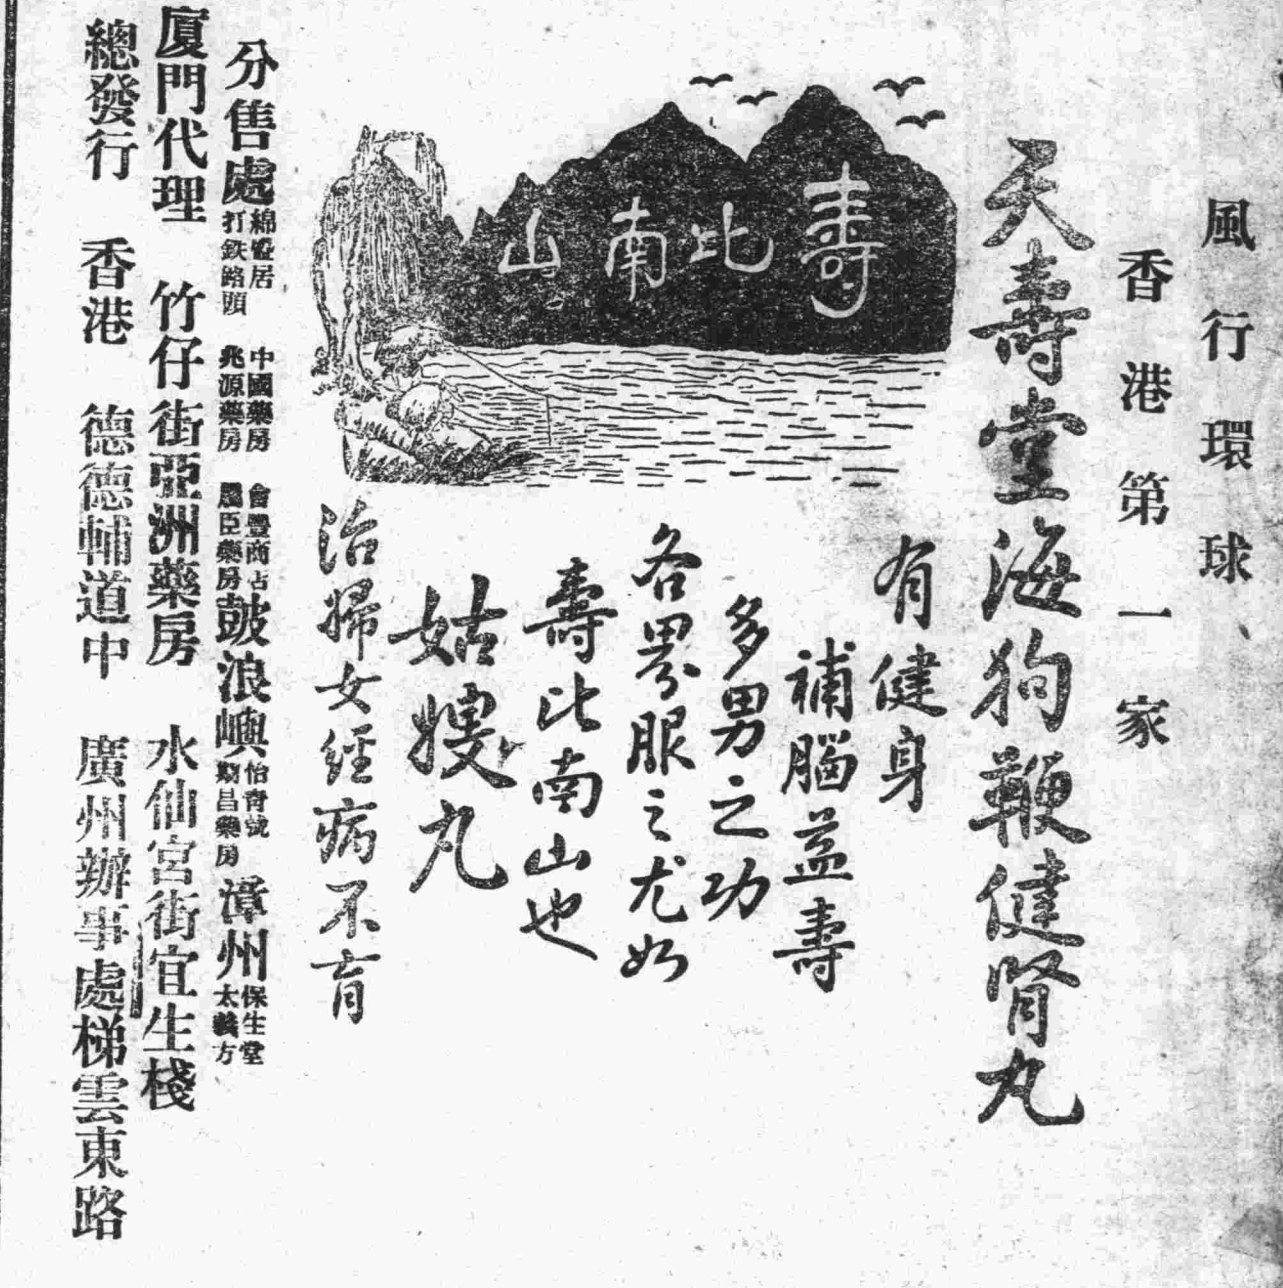 風行環球
香港第一家
天壽堂海狗鞭健腎丸
壽比南山
有健身
補腦益壽
多男之功
各界服之尤如
壽比南山也
姑嫂丸
治婦女經病不育
分售處
打鉄路頭
中國藥房
兆源藥房
臣藥房
鼓浪嶼
昌藥房
漳州
保生堂
太義方
廈門代理 竹仔街亞洲藥房 水仙宮街宜生棧
總發行 香港 德德輔道中 廣州辦事處梯雲東路